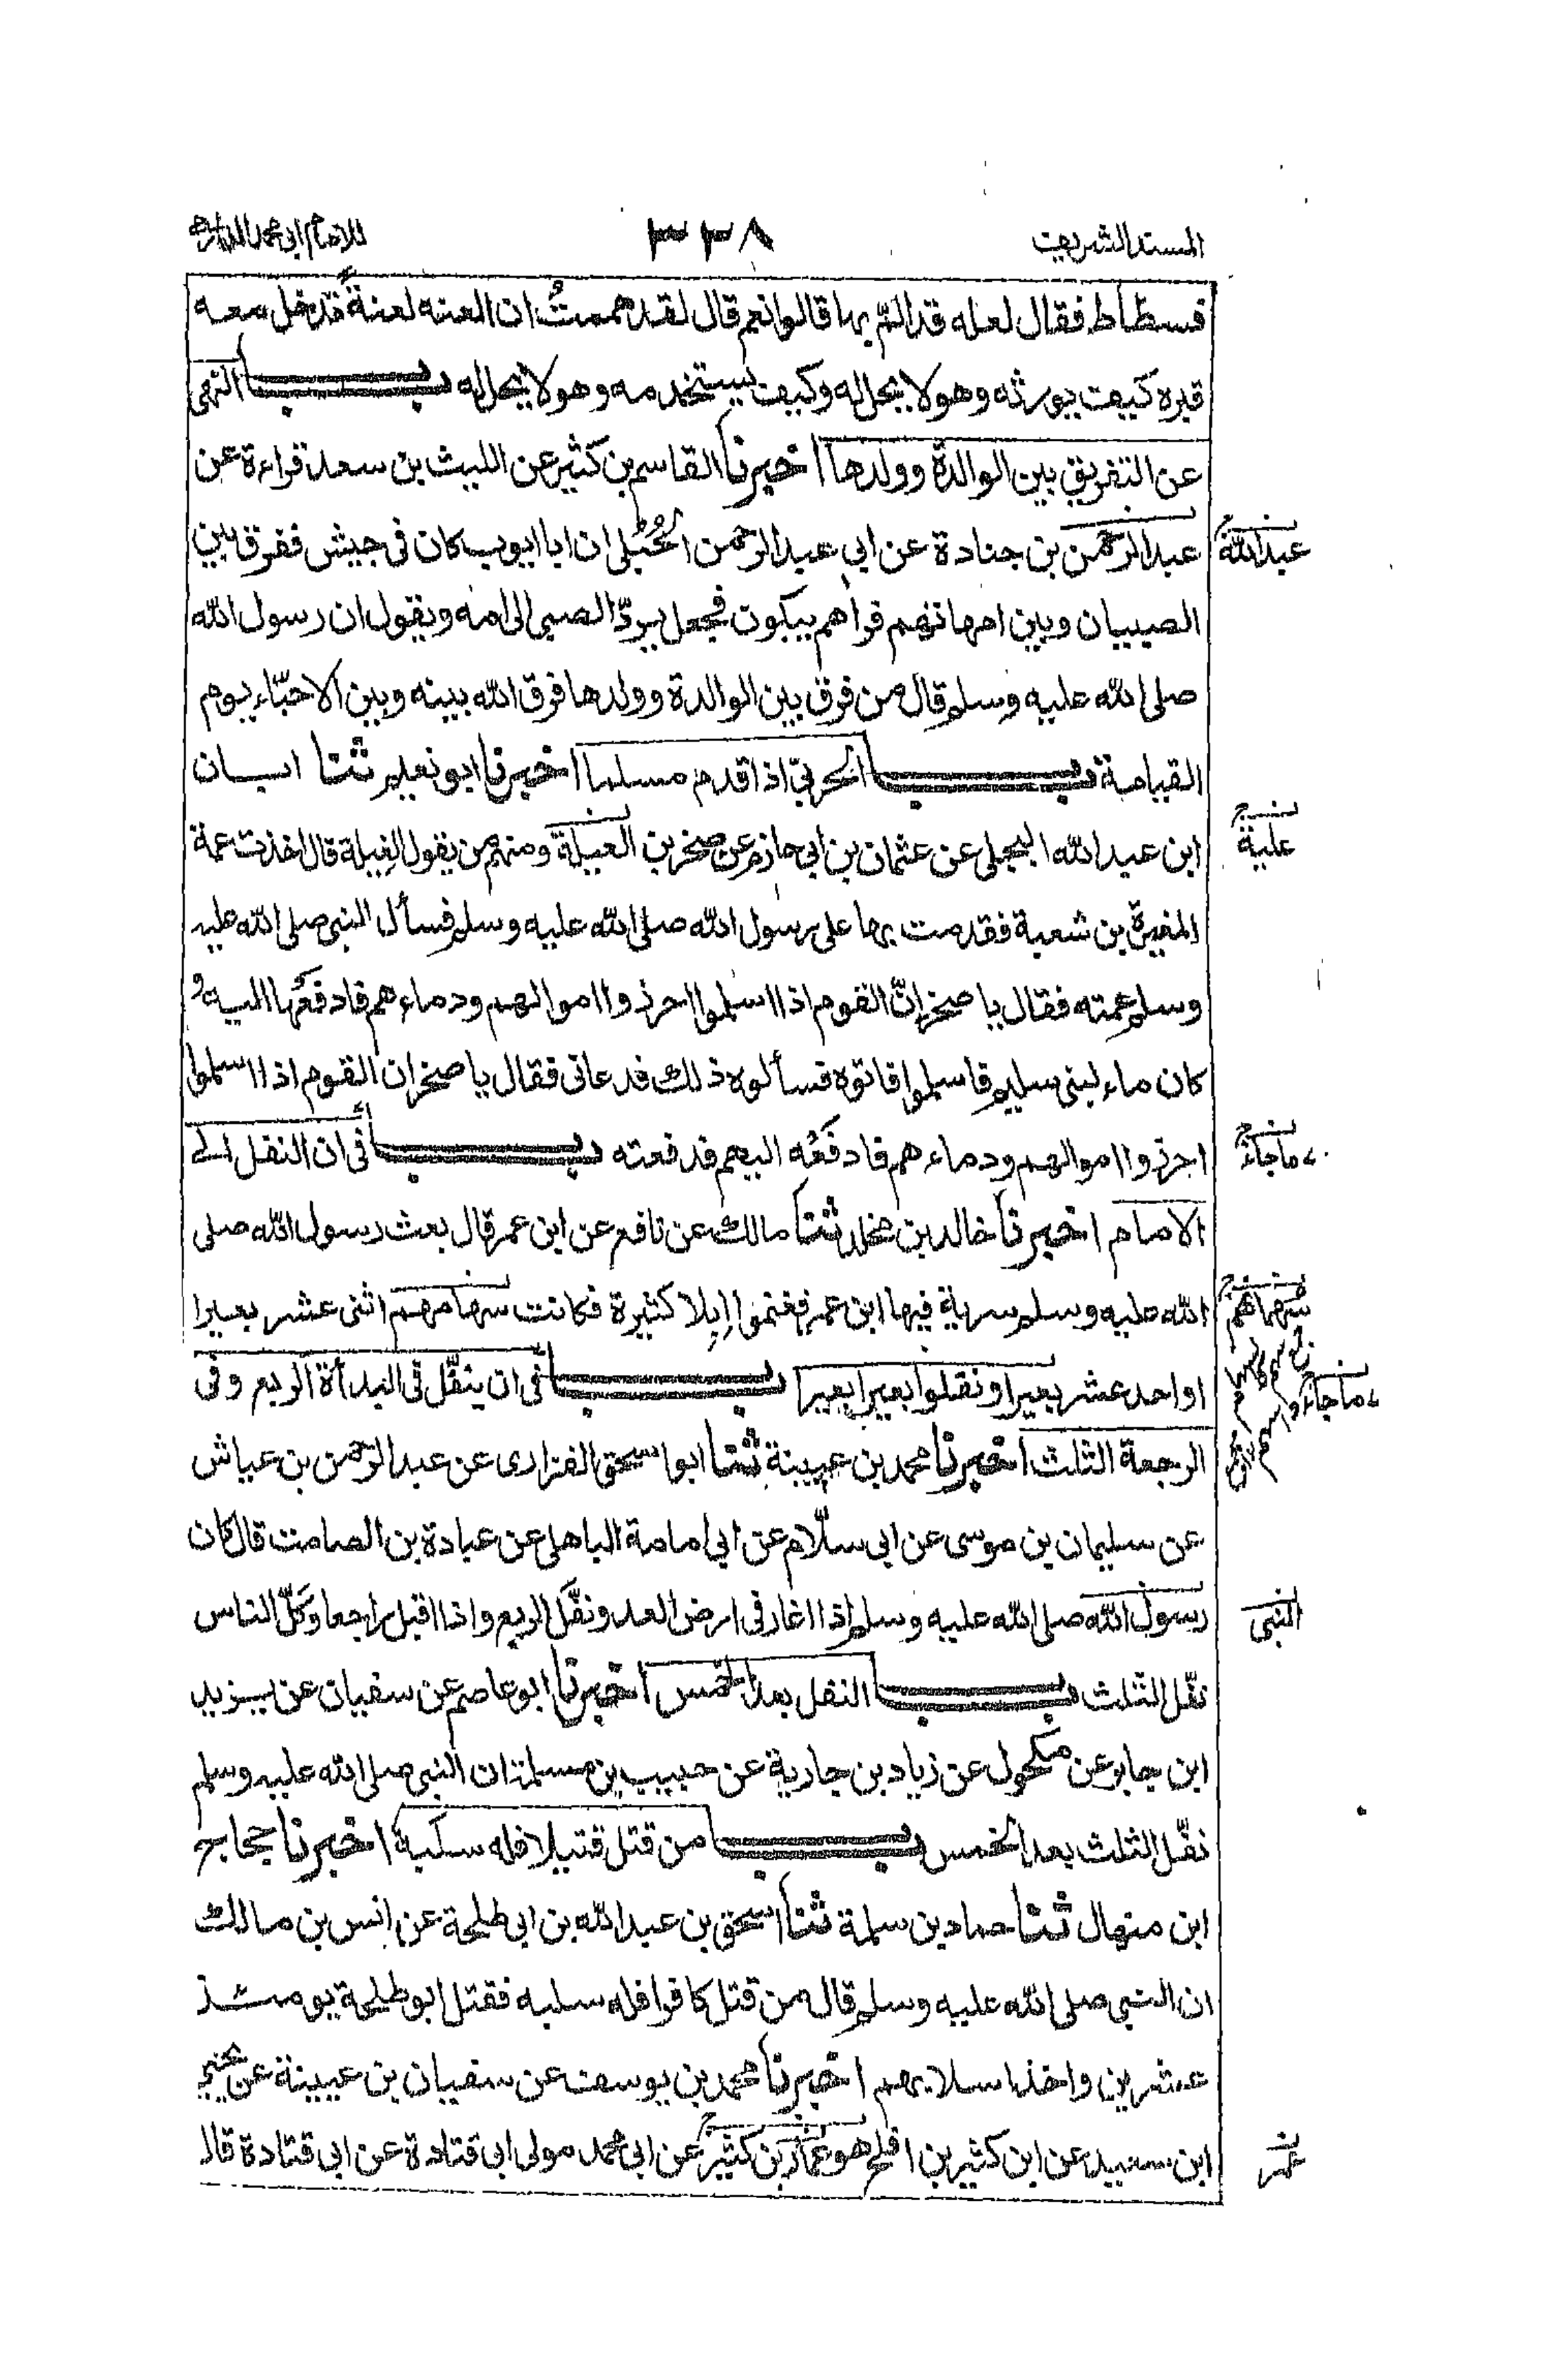 المسند الشريف ٣٣٨ للامام ابی محمد الدارمی
فسطاط فقال لعله قد الَمّ بها قالوا نعم قال لقد هممتُ ان العنه لعنةً تدخل معه
قبره كيف يورثه وهو لا يحل له وكيف يستخدمه وهو لا يحل له باب النهی
عن التفريق بين الوالدة وولدها اخبرنا القاسم بن كثير عن الليث بن سعد قراءة عن
عبد الرحمن بن جنادة عن ابی عبد الرحمن الحُبُلی ان ابا ايوب كان فی جيش ففرق بين
عبد الله
الصبيان وبين امهاتهم فراهم يبكون فجعل يردّ الصبی الی امه ويقول ان رسول الله
صلی الله عليه وسلم قال من فرق بين الوالدة وولدها فرق الله بينه وبين الاحبّاء يوم
القيامة باب الحربیّ اذا قدم مسلما اخبرنا ابو نعيم ثنا ابان
ابن عبد الله البجلی عن عثمان بن ابی حازم عن صخر بن العيلة ومنهم من يقول الغيلة قال اخذت عمة
علية
المغيرة بن شعبة فقدمت بها علی رسول الله صلی الله عليه وسلم فسأل النبی صلی الله عليه
وسلم عمته فقال يا صخر انّ القوم اذا اسلموا احرزوا اموالهم ودماءهم فادفعها اليه و
كان ماء لبنی سليم فاسلموا فاتوه فسألوه ذلك فدعانی فقال يا صخر ان القوم اذا اسلموا
احرزوا اموالهم ودماءهم فادفعه اليهم فدفعته باب فی ان النفل الی
ما جاء
الامام اخبرنا خالد بن مخلد ثنا مالك عن نافع عن ابن عمر قال بعث رسول الله صلی
الله عليه وسلم سرية فيها ابن عمر فغنموا ابلا كثيرة فكانت سهامهم اثنی عشر بعيرا
سهمانهم
او احد عشر بعيرا ونفلوا بعيرا بعيرا باب فی ان ينفّل فی البدأة الربع وفی
ما جاء
الرجعة الثلث اخبرنا محمد بن عيينة ثنا ابو اسحق الفزاری عن عبد الرحمن بن عياش
عن سليمان بن موسی عن ابی سلّام عن ابی امامة الباهلی عن عبادة بن الصامت قال كان
رسول الله صلی الله عليه وسلم اذا اغار فی ارض العدو نفّل الربع واذا اقبل راجعا وكلّ الناس
النبی
نفّل الثلث باب النفل بعد الخمس اخبرنا ابو عاصم عن سفيان عن يزيد
ابن جابر عن مكحول عن زياد بن جارية عن حبيب بن مسلمة ان النبی صلی الله عليه وسلم
نفّل الثلث بعد الخمس باب من قتل قتيلا فله سلبه اخبرنا حجاج
ابن منهال ثنا حماد بن سلمة ثنا اسحق بن عبد الله بن ابی طلحة عن انس بن مالك
ان النبی صلی الله عليه وسلم قال من قتل كافرا فله سلبه فقتل ابو طلحة يومئذ
عشرين واخذ اسلابهم اخبرنا محمد بن يوسف عن سفيان بن عيينة عن يحيی
ابن سعيد عن ابن كثير بن افلح هو عمار بن كثير عن ابی محمد مولی ابی قتادة عن ابی قتادة قال
عمر